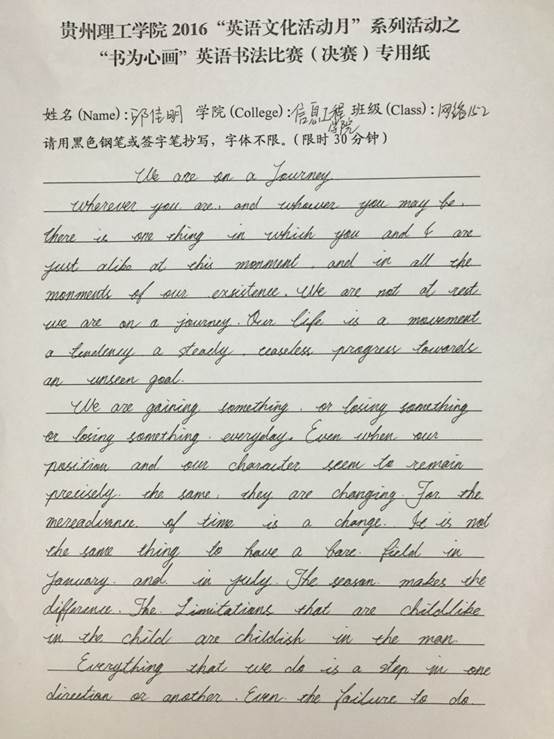 贵州理工学院 2016 “英语文化活动月” 系列活动之
“书为心画” 英语书法比赛 (决赛) 专用纸
姓名 (Name) : 邱佳明 学院 (College) : 信息工程学院 班级 (Class) : 网络152
请用黑色钢笔或签字笔抄写，字体不限。( 限时 30 分钟 )
We are on a Journey
Wherever you are, and whoever you may be,
there is one thing in which you and I are
just alike at this monment, and in all the
monments of our exsistence. We are not at rest
we are on a journey. Our life is a movement
a tendency a steady, ceaseless progress towards
an unseen goal.
We are gaining something, or losing something
or losing something everyday. Even when our
position and our character seem to remain
precisely the same, they are changing. For the
mereadvance of time is a change. It is not
the same thing to have a bare field in
January and in july. The season makes the
difference. The Limitations that are childlike
in the child are childish in the man
Everything that we do is a step in one
direction or another. Even the failure to do